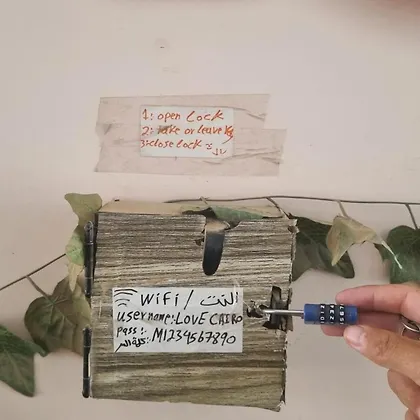 1: open Lock
2: take or leave Key
3: close Lock
Wifi / النت
username: LOVE CAIRO
pass:. M1234567890
كلمة السر: